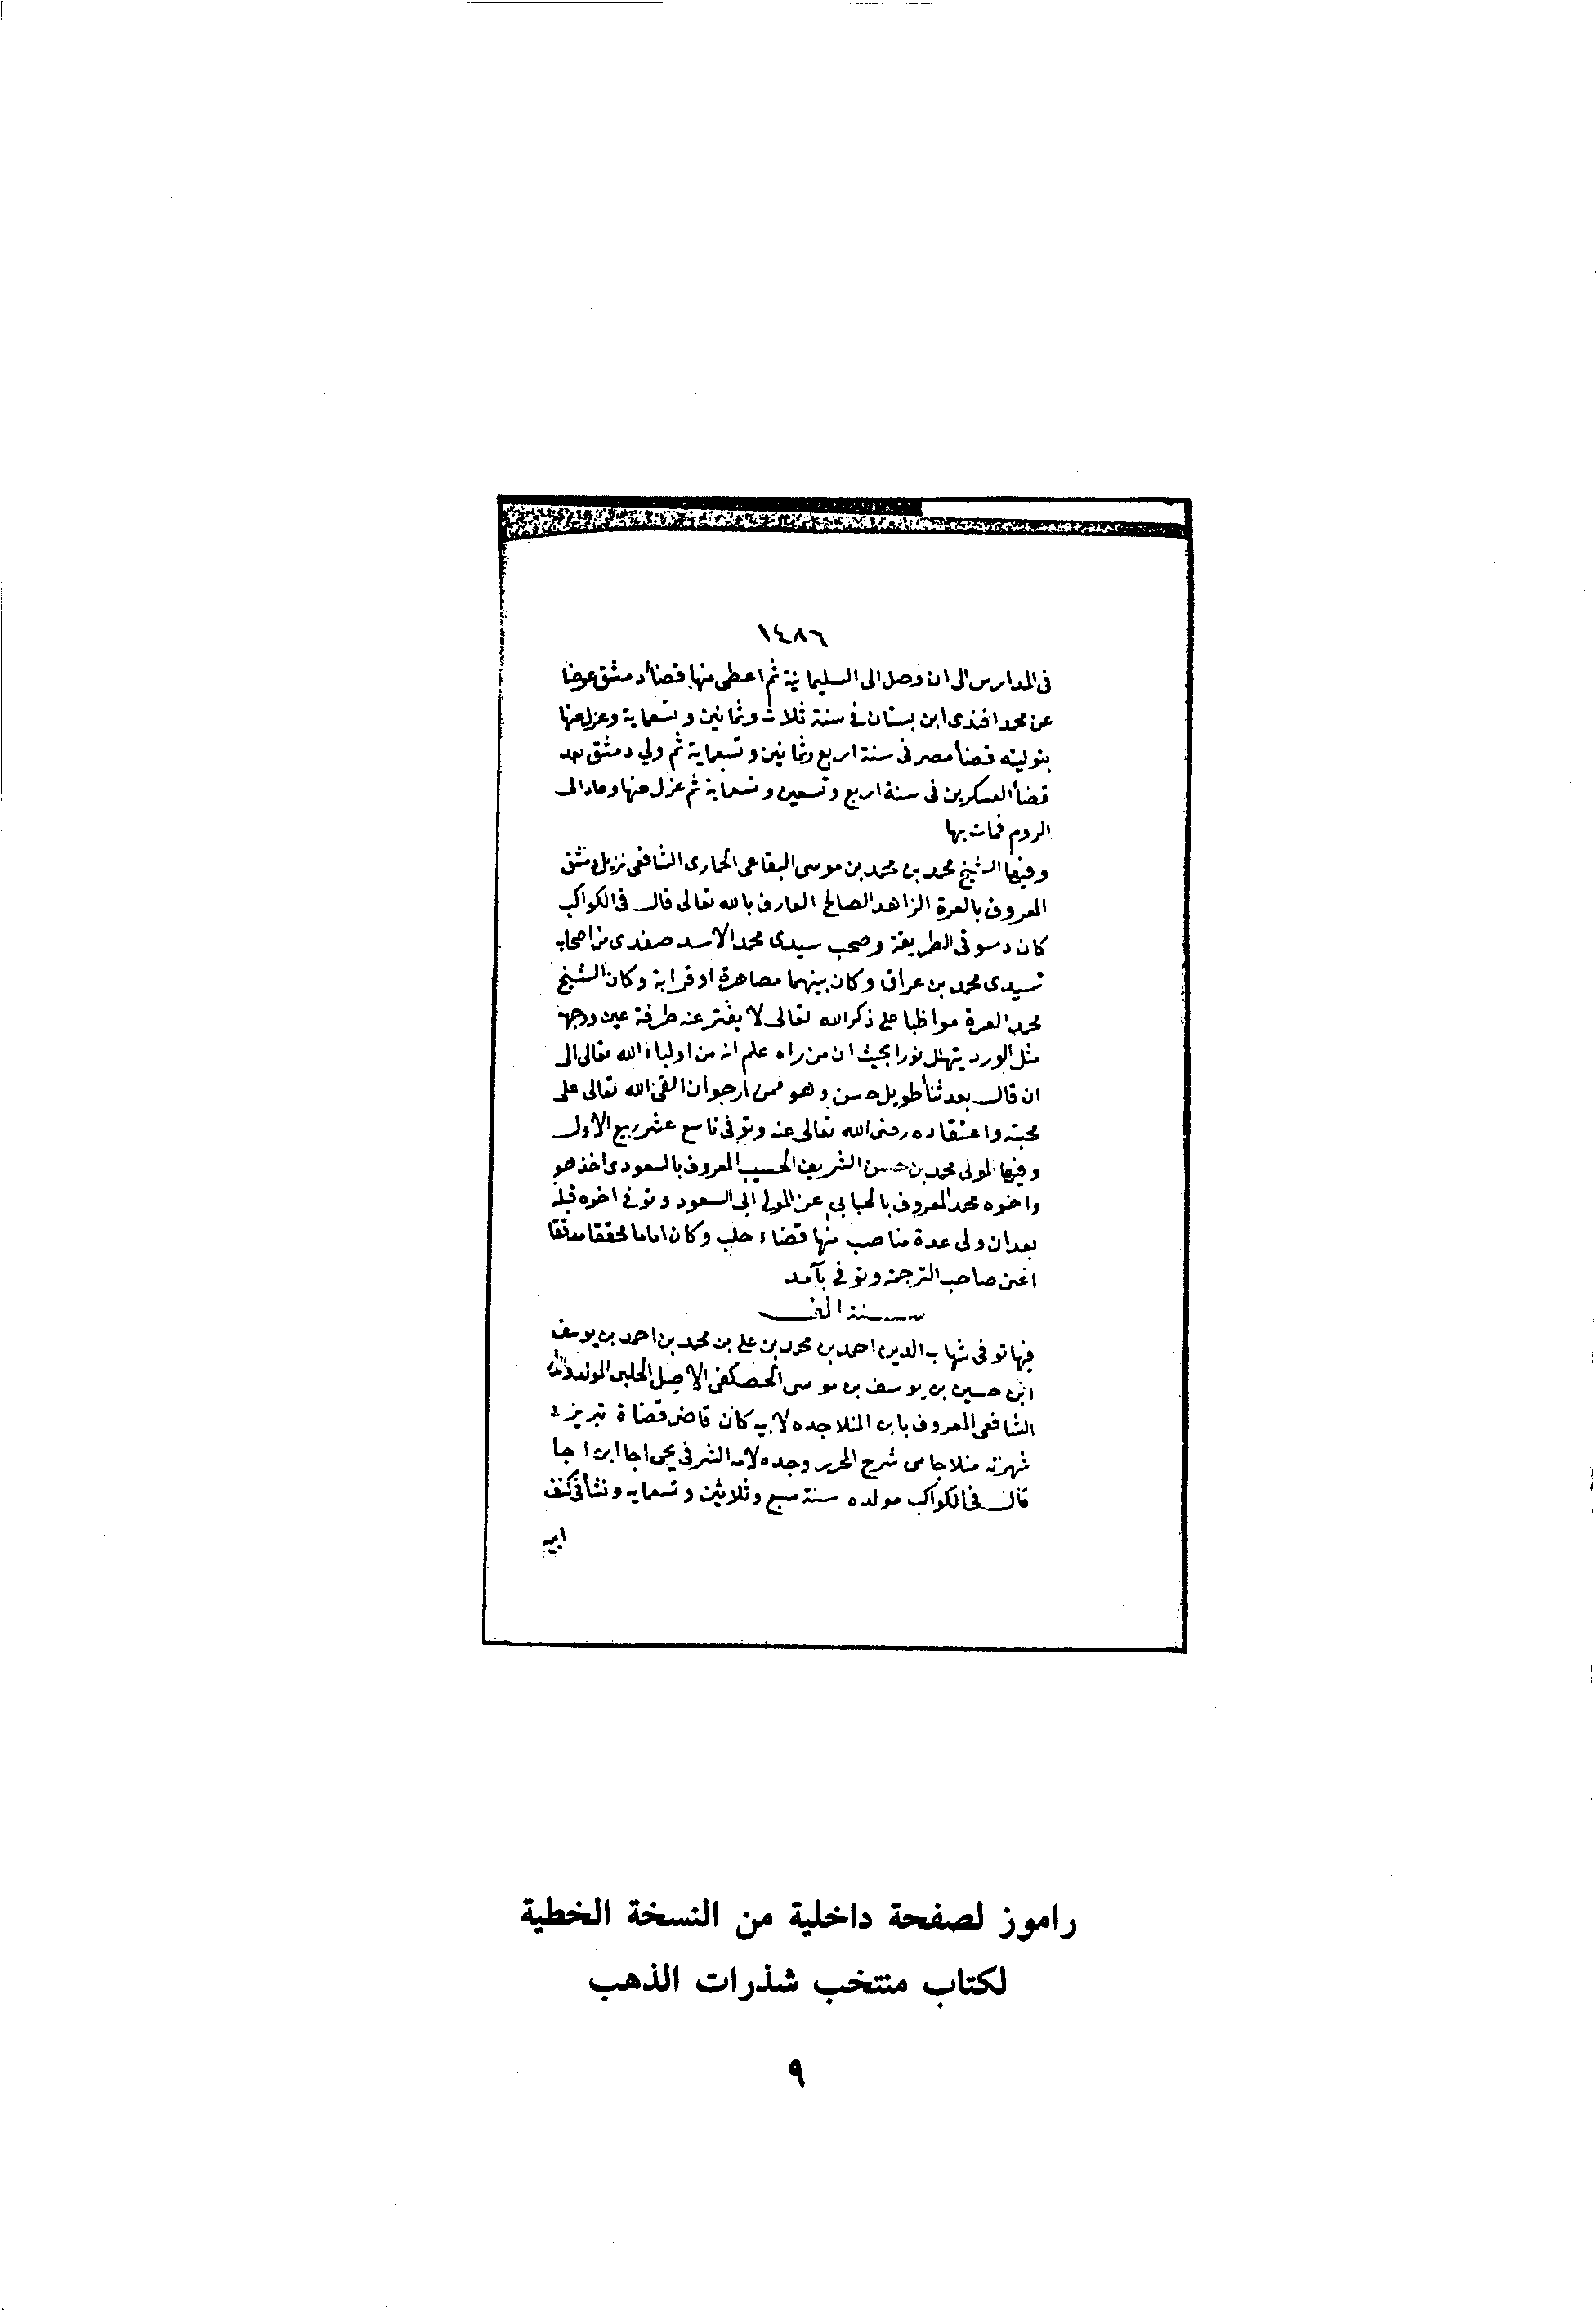 ١٤٨٦
فى المدارس الى ان وصل الى السليمانية ثم اعطى منها قضأ دمشق عوضا
عن محمد افندى ابن بستان فى سنة ثلاث وثمانين وتسعماية وعزل عنها
بتوليته قضأ مصر فى سنة اربع وثمانين وتسعماية ثم ولي دمشق بعد
قضأ العسكرين فى سنة اربع وتسعين وتسعماية ثم عزل عنها وعاد الى
الروم فمات بها
وفيها الشيخ محمد بن محمد بن موسى البقاعى الحمارى الشافعى نزيل دمشق
المعروف بالعرة الزاهد الصالح العارف بالله تعالى قال فى الكواكب
كان دسوقى الطريقة وصحب سيدى محمد الاسد صفدى من اصحاب
سيدى محمد بن عراق وكان بينهما مصاهرة او قرابة وكان الشيخ
محمد العرة مواظبا على ذكر الله تعالى لا يفتر عنه طرفة عين ووجهه
مثل الورد يتهلل نورا بحيث ان من راه علم انه من اولياء الله تعالى الى
ان قال بعد ثنأ طويل حسن وهو ممن ارجو ان القى الله تعالى على
محبته واعتقاده رضى الله تعالى عنه وتوفى تاسع عشر ربيع الاول
وفيها المولى محمد بن حسن الشريف الحسيب المعروف بالسعودى اخذ هو
واخوه محمد المعروف عن المولى ابى السعود وتوفى اخوه قبله
بعد ان ولى عدة مناصب منها قضاء حلب وكان اماما محققا مدققا
اعنى صاحب الترجمة وتوفى بآمد
سنة الف
فيها توفى شهاب الدين احمد بن محمد بن على بن محمد بن احمد بن يوسف
ابن حسين بن يوسف بن موسى الحصكفى الاصل الحلبى المولد والدار
الشافعى المعروف بابن المنلا جده لابيه كان قاضى قضاة تبريز
شهرته منلا جامى شرح المحرر وجده لامه الشرفى يحى اجا ابن اجا
قال فى الكواكب مولده سنة سبع وثلاثين وتسعمايه ونشأ فى كنف
ابيه
راموز لصفحة داخلية من النسخة الخطية
لكتاب منتخب شذرات الذهب
٩